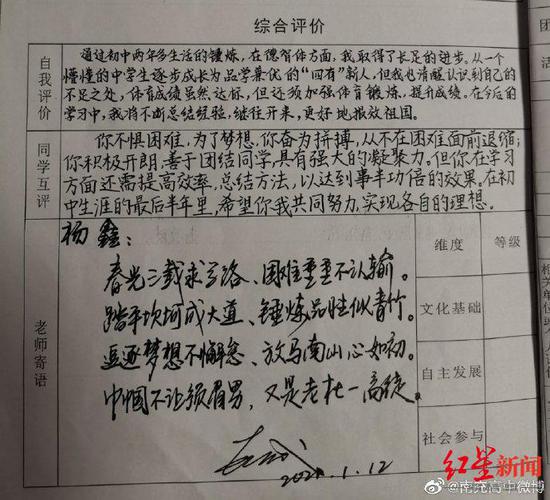 综合评价
自我评价
通过初中两年多生活的锤炼,在德智体方面,我取得了长足的进步。从一个
懵懂的中学生逐步成长为品学兼优的“四有”新人,但我也清醒认识到自己的
不足之处,体育成绩虽然达标,但还须加强体育锻炼,提升成绩。在今后的
学习中,我将不断总结经验,继往开来,更好地报效祖国。
同学互评
你不惧困难,为了梦想,你奋力拼搏,从不在困难面前退缩;
你积极开朗,善于团结同学,具有强大的凝聚力。但你在学习
方面还需提高效率,总结方法,以达到事半功倍的效果。在初
中生涯的最后半年里,希望你我共同努力,实现各自的理想。
老师寄语
杨鑫:
春光三载求学路、困难重重不认输。
踏平坎坷成大道、锤炼品性似青竹。
追逐梦想不懈怠、放马南山心如初。
巾帼不让须眉男,又是老杜一高徒。
2021.1.12
维度
等级
文化基础
自主发展
社会参与
红星新闻
@南充高中微博